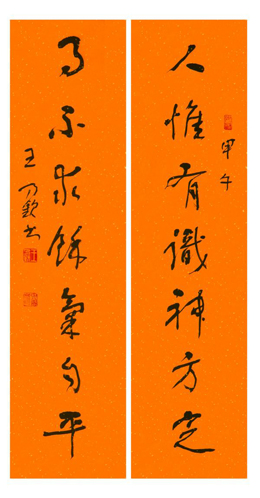 人惟有識神方定
甲午
事不求餘氣自平
王乃欽书